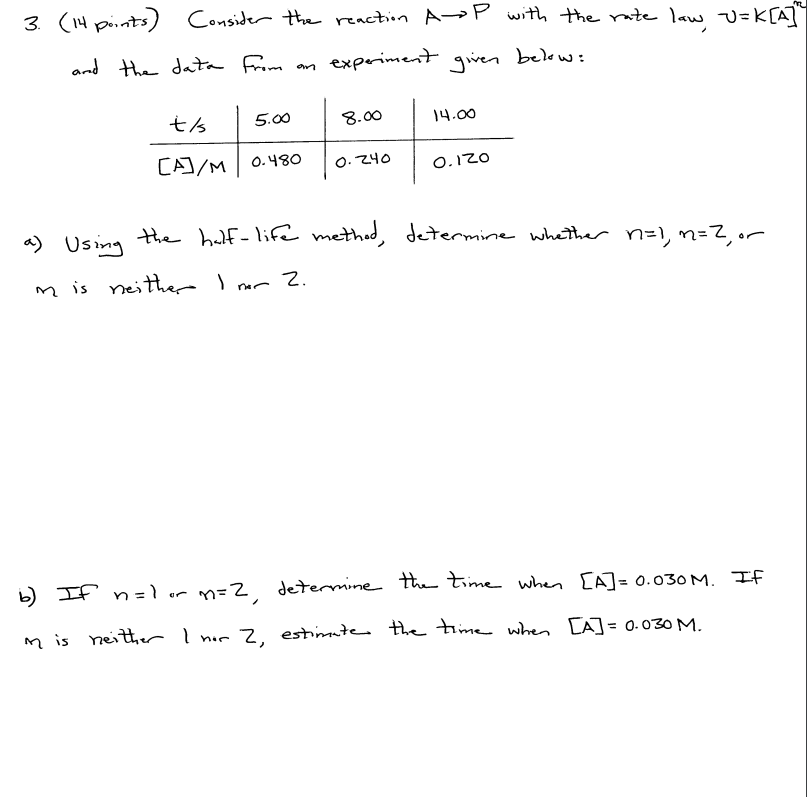 3. (14 points) Consider the reaction A→P with the rate law, v=k[A]ⁿ
and the data from an experiment given below:
t/s 5.00 8.00 14.00
[A]/M 0.480 0.240 0.120
a) Using the half-life method, determine whether n=1, n=2, or
n is neither 1 nor 2.
b) If n=1 or n=2, determine the time when [A]=0.030M. If
n is neither 1 nor 2, estimate the time when [A]=0.030M.